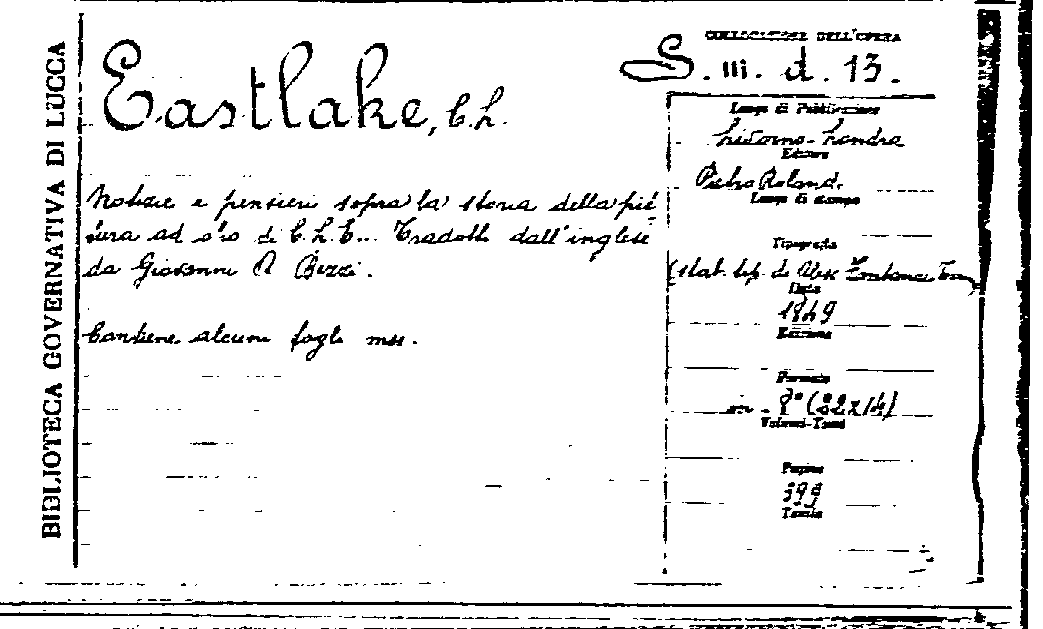 BIBLIOTECA GOVERNATIVA DI LUCCA
Eastlake, C. L.
Notizie e pensieri sopra la storia della pit
tura ad olio di C. L. E... Tradotti dall'inglese
da Giovanni Bezzi.
Contiene alcuni fogli mss.
COLLOCAZIONE DELL'OPERA
S. III. d. 13.
Luogo di Pubblicazione
Livorno - Londra
Editore
Pietro Roland.
Luogo di stampa
Tipografia
(stab. tip. di Aless. Fontana
Data
1849
Edizione
Formato
in - 8° (22x14)
Volumi-Tomi
Pagine
399
Tavole